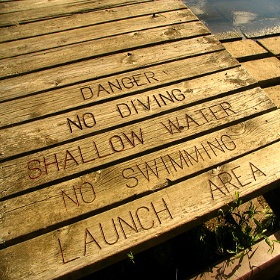 DANGER
NO DIVING
SHALLOW WATER
NO SWIMMING
LAUNCH AREA